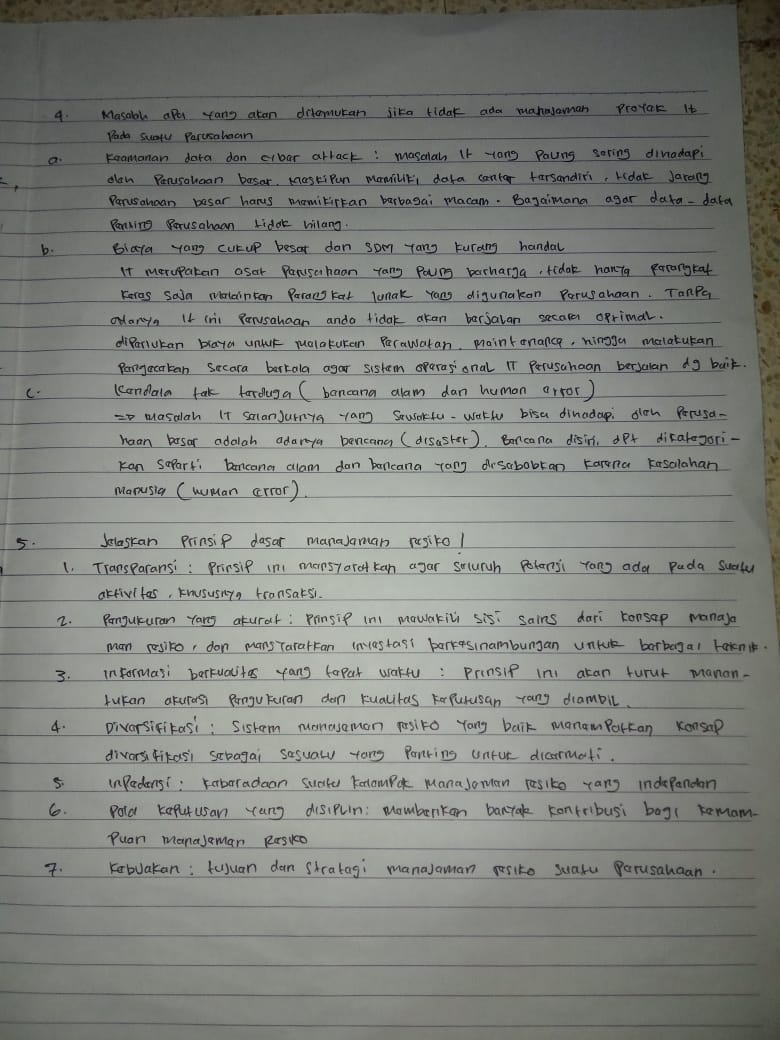 4. Masalah apa yang akan ditemukan jika tidak ada manajemen Proyek It
Pada suatu Perusahaan
a. Keamanan data dan cyber attack : masalah It yang Paling sering dihadapi
oleh Perusahaan besar. Meskipun memiliki data center tersendiri, tidak jarang
Perusahaan besar harus memikirkan berbagai macam. Bagaimana agar data-data
Penting Perusahaan tidak hilang.
b. Biaya yang cukup besar dan SDM yang kurang handal
IT merupakan aset Perusahaan yang Paling berharga, tidak hanya Perangkat
keras saja melainkan Perangkat lunak yang digunakan Perusahaan. Tanpa
adanya It ini Perusahaan anda tidak akan berjalan secara optimal.
diperlukan biaya untuk melakukan Perawatan, maintenance, hingga melakukan
Pengecekan secara berkala agar sistem operasional IT Perusahaan berjalan dg baik.
c. Kendala tak terduga ( bencana alam dan human error )
=> masalah IT selanjutnya yang sewaktu-waktu bisa dihadapi oleh Perusa-
haan besar adalah adanya bencana ( disaster ). Bencana disini, dpt dikategori-
kan seperti bencana alam dan bencana yang disebabkan karena kesalahan
manusia ( human error ).
5. Jelaskan Prinsip dasar manajemen resiko !
1. Transparansi : Prinsip ini mensyaratkan agar seluruh Potensi yang ada pada suatu
aktivitas, khususnya transaksi.
2. Pengukuran yang akurat : Prinsip ini mewakili sisi sains dari konsep manaje
men resiko, dan mensyaratkan investasi berkesinambungan untuk berbagai teknik.
3. informasi berkualitas yang tepat waktu : Prinsip ini akan turut menen-
tukan akurasi Pengukuran dan kualitas keputusan yang diambil.
4. Diversifikasi : Sistem manajemen resiko yang baik menempatkan konsep
diversifikasi sebagai sesuatu yang Penting untuk dicermati.
5. inpedensi : keberadaan suatu kelompok manajemen resiko yang independen
6. Pola keputusan yang disiplin : memberikan banyak kontribusi bagi kemam-
Puan manajemen Resiko
7. Kebijakan : tujuan dan strategi manajemen resiko suatu Perusahaan.